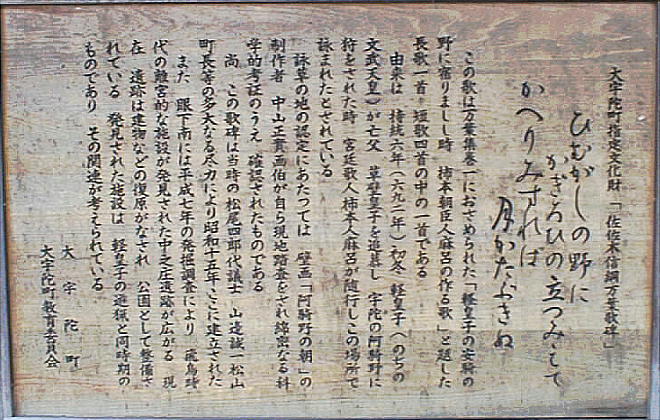 大宇陀町指定文化財 「佐佐木信綱万葉歌碑」
ひむがしの野に
かぎろひの立つみえて
かへりみすれば
月かたぶきぬ
この歌は万葉集巻一におさめられた「軽皇子の安騎の
野に宿りましし時 柿本朝臣人麻呂の作る歌」と題した
長歌一首 短歌四首の中の一首である
由来は 持統六年(六九二年)初冬 軽皇子(のちの
文武天皇)が亡父 草壁皇子を追慕し 宇陀の阿騎野に
狩をされた時 宮廷歌人柿本人麻呂が随行しこの場所で
詠まれたとされている
詠草の地の認定にあたつては 壁画「阿騎野の朝」の
制作者 中山正實画伯が自ら現地踏査をされ綿密なる科
学的考証のうえ 確認されたものである
尚 この歌碑は当時の松尾四郎代議士 山邊誠一松山
町長等の多大なる尽力により昭和十五年ここに建立された
また 眼下南には平成七年の発掘調査により 飛鳥時
代の離宮的な施設が発見された中之庄遺跡が広がる 現
在 遺跡は建物などの復原がなされ 公園として整備さ
れている 発見された施設は 軽皇子の遊猟と同時期の
ものであり その関連が考えられている
大宇陀町
大宇陀町教育委員会